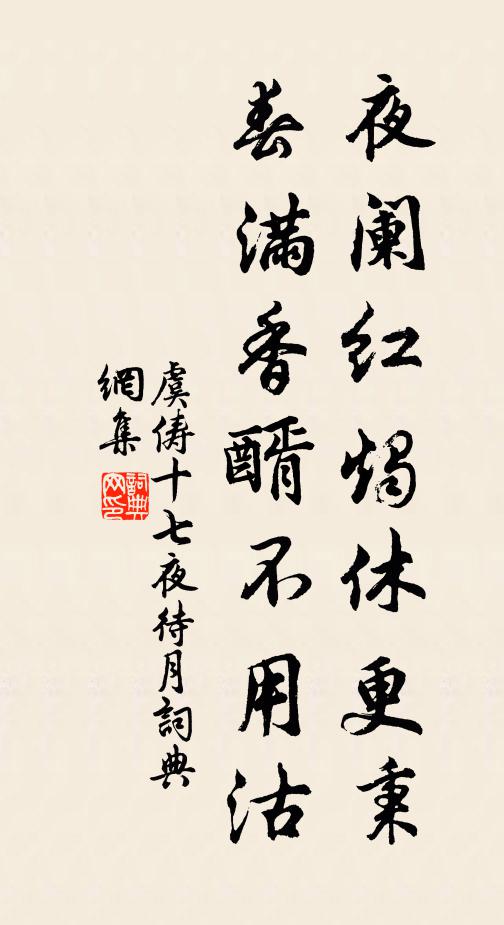 夜阑红烛休更秉
春满香醑不用沽
虞俦十七夜待月詞典
網集
詞典网印